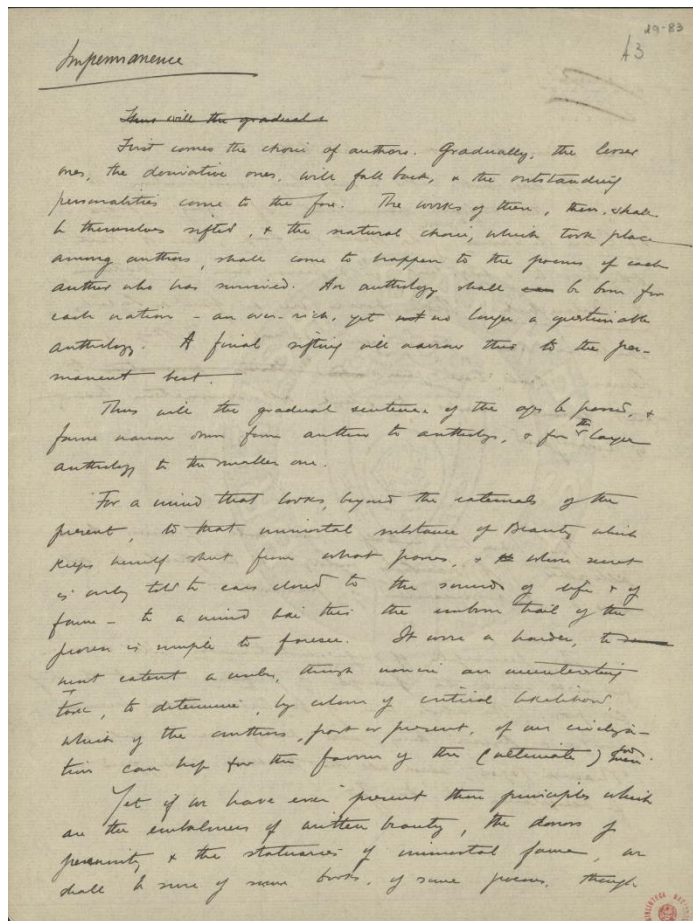 19-83
A3
Impermanence
Thus will the gradual
First comes the choice of authors. Gradually, the lesser
ones, the derivative ones, will fall back, & the outstanding
personalities come to the fore. The works of these, then, shall
be themselves sifted, & the natural choice, which took place
among authors, shall come to happen to the poems of each
author who has survived. An anthology shall be born for
each nation – an over-rich, yet not no longer a questionable
anthology. A final sifting will narrow this to the per-
manent best.
Thus will the gradual sentence of the ages be passed, &
fame narrow down from author to anthology, & from the larger
anthology to the smaller one.
For a mind that looks, beyond the externals of the
present, to that immortal substance of Beauty which
keeps herself shut from what passes, & whose secret
is only told to ears closed to the sounds of life & of
fame – to a mind like this the unborn trail of the
process is simple to foresee. It were a harder, to
most extent a, though never an uninteresting
task, to determine, by colour of critical likelihood,
which of the authors, past or present, of our civiliza-
tion can hope for the favour of the (ultimate)
Yet if we have ever present these principles which
are the embalmers of written beauty, the donors of
perennity, & the statuaries of immortal fame, we
shall be sure of some books, of some poems, though